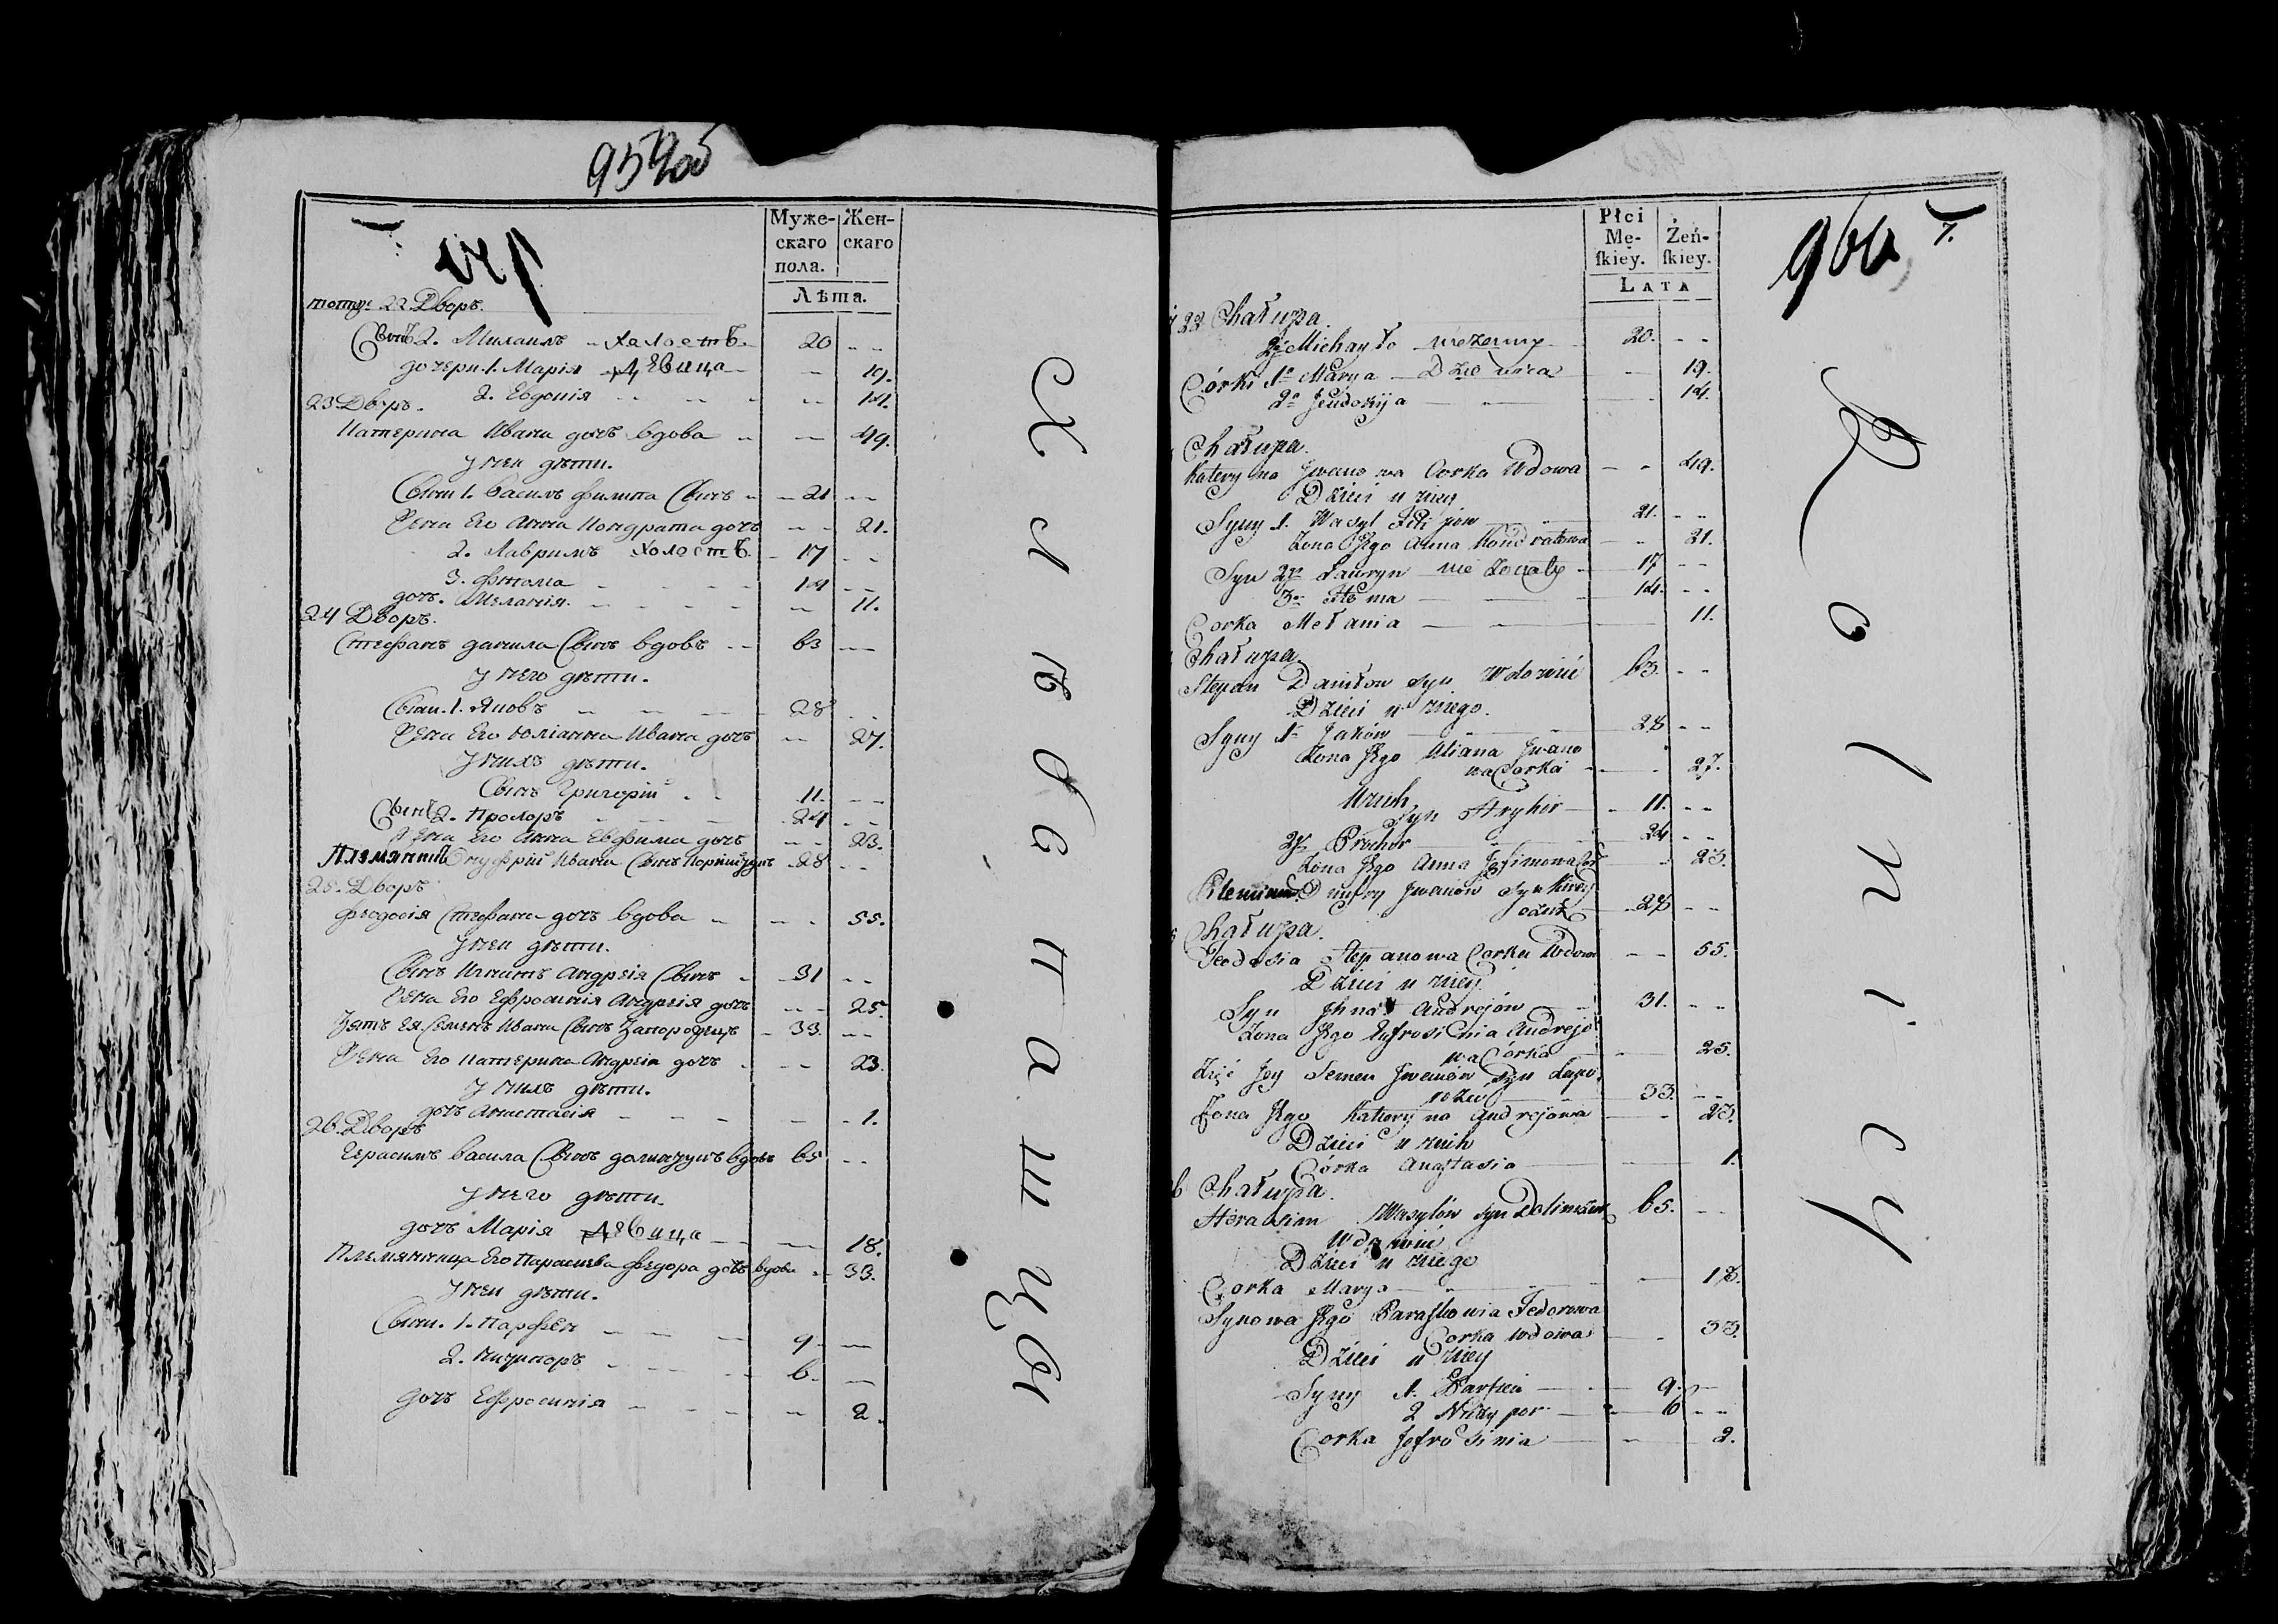 95
Муже-
скаго
пола.
Жен-
скаго
Лѣта.
тотже 22. Дворъ.
Сынъ 2. Михаилъ холостъ. 20
дочери. 1. Марія дѣвица 19.
2. Евдокія 14.
23. Дворъ.
Катерина Ивана дочь вдова 49.
У неи дѣти.
Сыны 1. Василь Филипа Сынъ 21
Жена Его Анна Кондрата дочь 21.
2. Лавринъ холостъ. 17
3. Фтома 14
дочь. Меланія. 11.
24 Дворъ.
Стефанъ Данила Сынъ вдовъ 63
У него дѣти.
Сыны. 1. Яковъ 28
Жена Его Юліанна Ивана дочь 27.
У нихъ дѣти.
Сынъ Григорій 11.
Сынъ 2. Прохоръ 24
Жена Его Анна Евфима дочь 23.
Племянникъ Онуфрій Ивана Сынъ 28
25. Дворъ
Феодосія Стефана дочь вдова 55.
У неи дѣти.
Сынъ Игнатъ Андрѣія Сынъ 31
Жена Его Ефросинія Андрѣія дочь 25.
Зять Ея Семенъ Ивана Сынъ Запорожецъ 33.
Жена Его Катерина Андрѣія дочь 23.
У нихъ дѣти.
дочь Анастасія 1.
26. Дворъ
Герасимъ Васила Сынъ вдовъ 65
У него дѣти.
дочь Марія дѣвица 18.
Племянница Его Параскева Федора дочь вдова 33.
У неи дѣти.
Сыны. 1. Парфен 9
2. Ничипоръ 6.
дочь Ефросинія 2.
Хлѣбопашцы
Płci
Mę-
ſkiey.
Żeń-
ſkiey.
LATA
960
7.
22 Chałupa.
2y Michayło nieżenny 20.
Córki 1a Marya Dziewica 19.
2a Jeudokija 14.
Chałupa.
Kateryna Jwanowa Corka Wdowa 49.
Dzieci u niey
Syny 1. Wasyl Filipow 21.
Żona Jego Anna Kondratowa 21.
Syn 2gi Ławryn nie żonaty 17
3ci Htoma 14.
Corka Mełania 11.
Chałupa.
Stepan Daniłow Syn Wdowiec 63.
Dzieci u niego.
Syny 1. Jaków 28
Żona Jego Uliana Jwano
wa Corka 27.
U nich
Syn Hryhir 11.
2gi Prochor 24
Żona Jego Anna Jefimowa Cor 23.
Onufry Jwanów Syn 28
Chałupa.
Feodosia Stepanowa Corka Wdowa 55.
Dzieci u niey
Syn Jhnat Andrejów 31.
Żona Jego Andrejo
wa Córka 25.
Zięć Jey Semen Jwanów Syn Zapo
rożec 33.
Żona Jego Kateryna Andrejowa 23.
Dzieci u nich
Córka Anastasia 1.
Chałupa.
Herasim Wasylów Syn 65.
Wdowiec
Dzieci u niego
Corka Marya 18.
Synowa Jego Paraſkowia Fedorowa
Corka Wdowa 33.
Dzieci u niey
Syny 1. Parfen 9.
2 Niczypor 6
Corka Jefrosinia 2.
Rolnicy